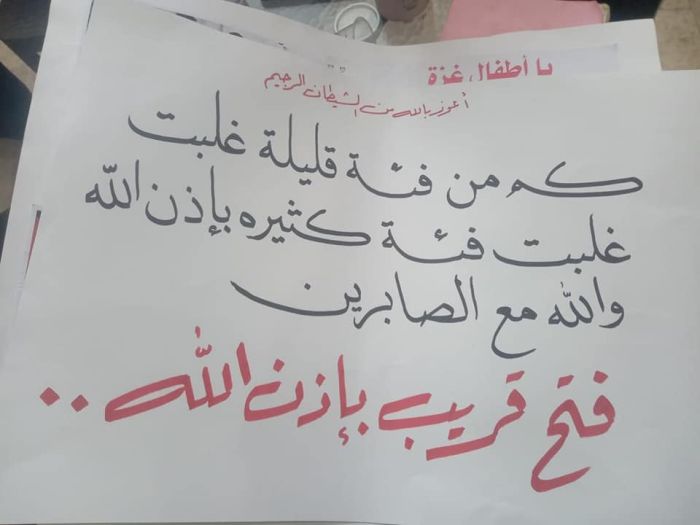 يا أطفال غزة
أعوذ بالله من الشيطان الرجيم
كم من فئة قليلة غلبت
غلبت فئة كثيره بإذن الله
والله مع الصابرين
فتح قريب بإذن الله..